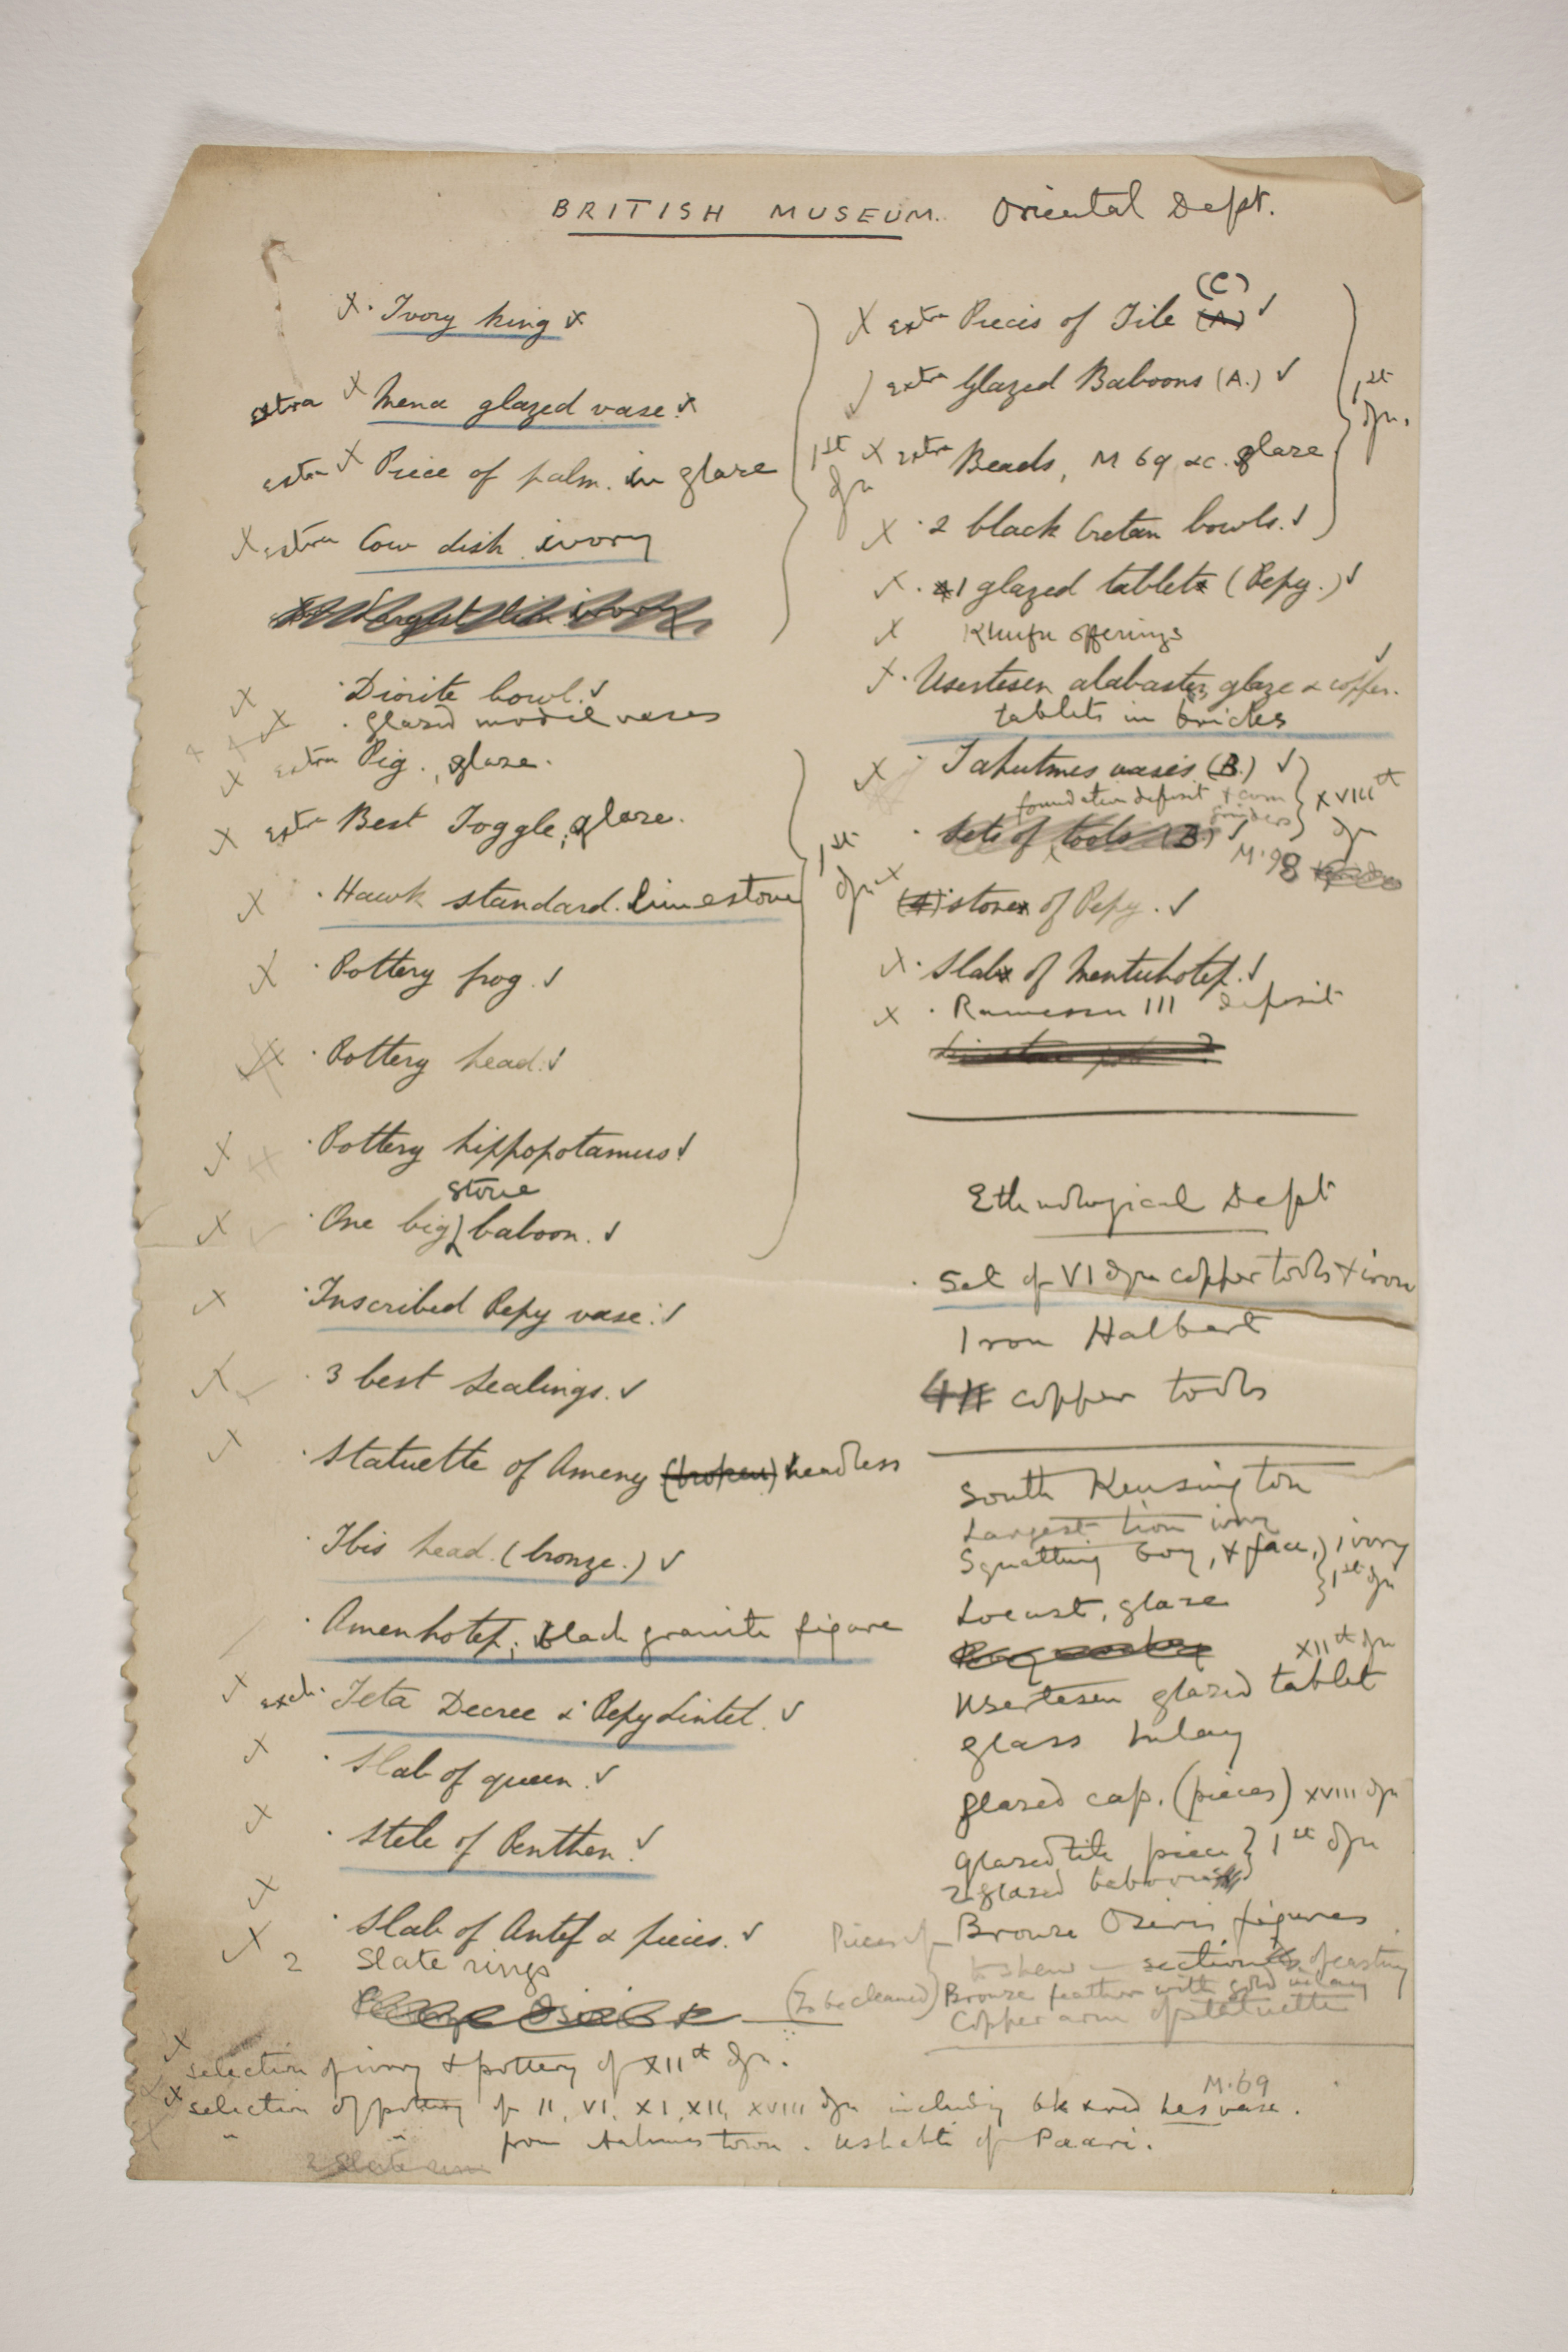 BRITISH MUSEUM. Oriental Dept.
x · Ivory king x
extra x Mena glazed vase. x
extra x Piece of palm. in glaze
x extra Cow dish. ivory
1st dyn
Diorite bowl. ✓
x · glazed model vases
x extra Pig., glaze.
x extra Best Toggle, glaze.
x · Hawk standard. limestone
x · Pottery frog. ✓
x · Pottery head. ✓
x · Pottery hippopotamus ✓
stone
x · One big baboon. ✓
1st dyn
x · Inscribed Pepy vase. ✓
x · 3 best sealings. ✓
x · Statuette of Ameny (broken) headless
· Ibis head. (bronze.) ✓
· Amenhotep; black granite figure
x · Teta Decree & Pepy Lintel. ✓
x · Slab of queen. ✓
x · Stele of Penthen. ✓
x · Slab of Antef & pieces. ✓
x 2 Slate rings
(C)
x extra Pieces of Tile (A) ✓
extra Glazed Baboons (A.) ✓
x extra Beads, M 69 &c. glaze
x · 2 black Cretan bowls. ✓
1st dyn.
x · 1 glazed tablet (Pepy.) ✓
x Khufu offerings
x · Usertesen alabaster, glaze & copper. ✓
tablets in bricks
x · Tahutmes vases (B.) ✓
foundation deposit & corn grinders
XVIIIth dyn
· Sets of tools (B) ✓
M.98
x (4) stones of Pepy. ✓
x · Slab of Mentuhotep. ✓
x · Ramessu III deposit
Ethnological Dept
· Set of VI dyn copper tools & iron
Iron Halbert
copper tools
South Kensington
Largest lion ivory
Squatting boy, & face, } ivory
1st dyn
Locust, glaze
XIIth dyn
Usertesen glazed tablet
glass inlay
glazed cap. (pieces) XVIII dyn
glazed tile piece } 1st dyn
2 glazed baboons
Pieces of Bronze Osiris figures
to shew section of casting
(to be cleaned) Bronze feather with gold inlay
Copper arm of statuette
x selection of ivory & pottery of XIIth dyn.
x selection of pottery of II, VI, XI, XII, XVIII dyn including bk & red hes vase. M.69
" " from Aahmes town. Ushabti of Paari.
2 Slate